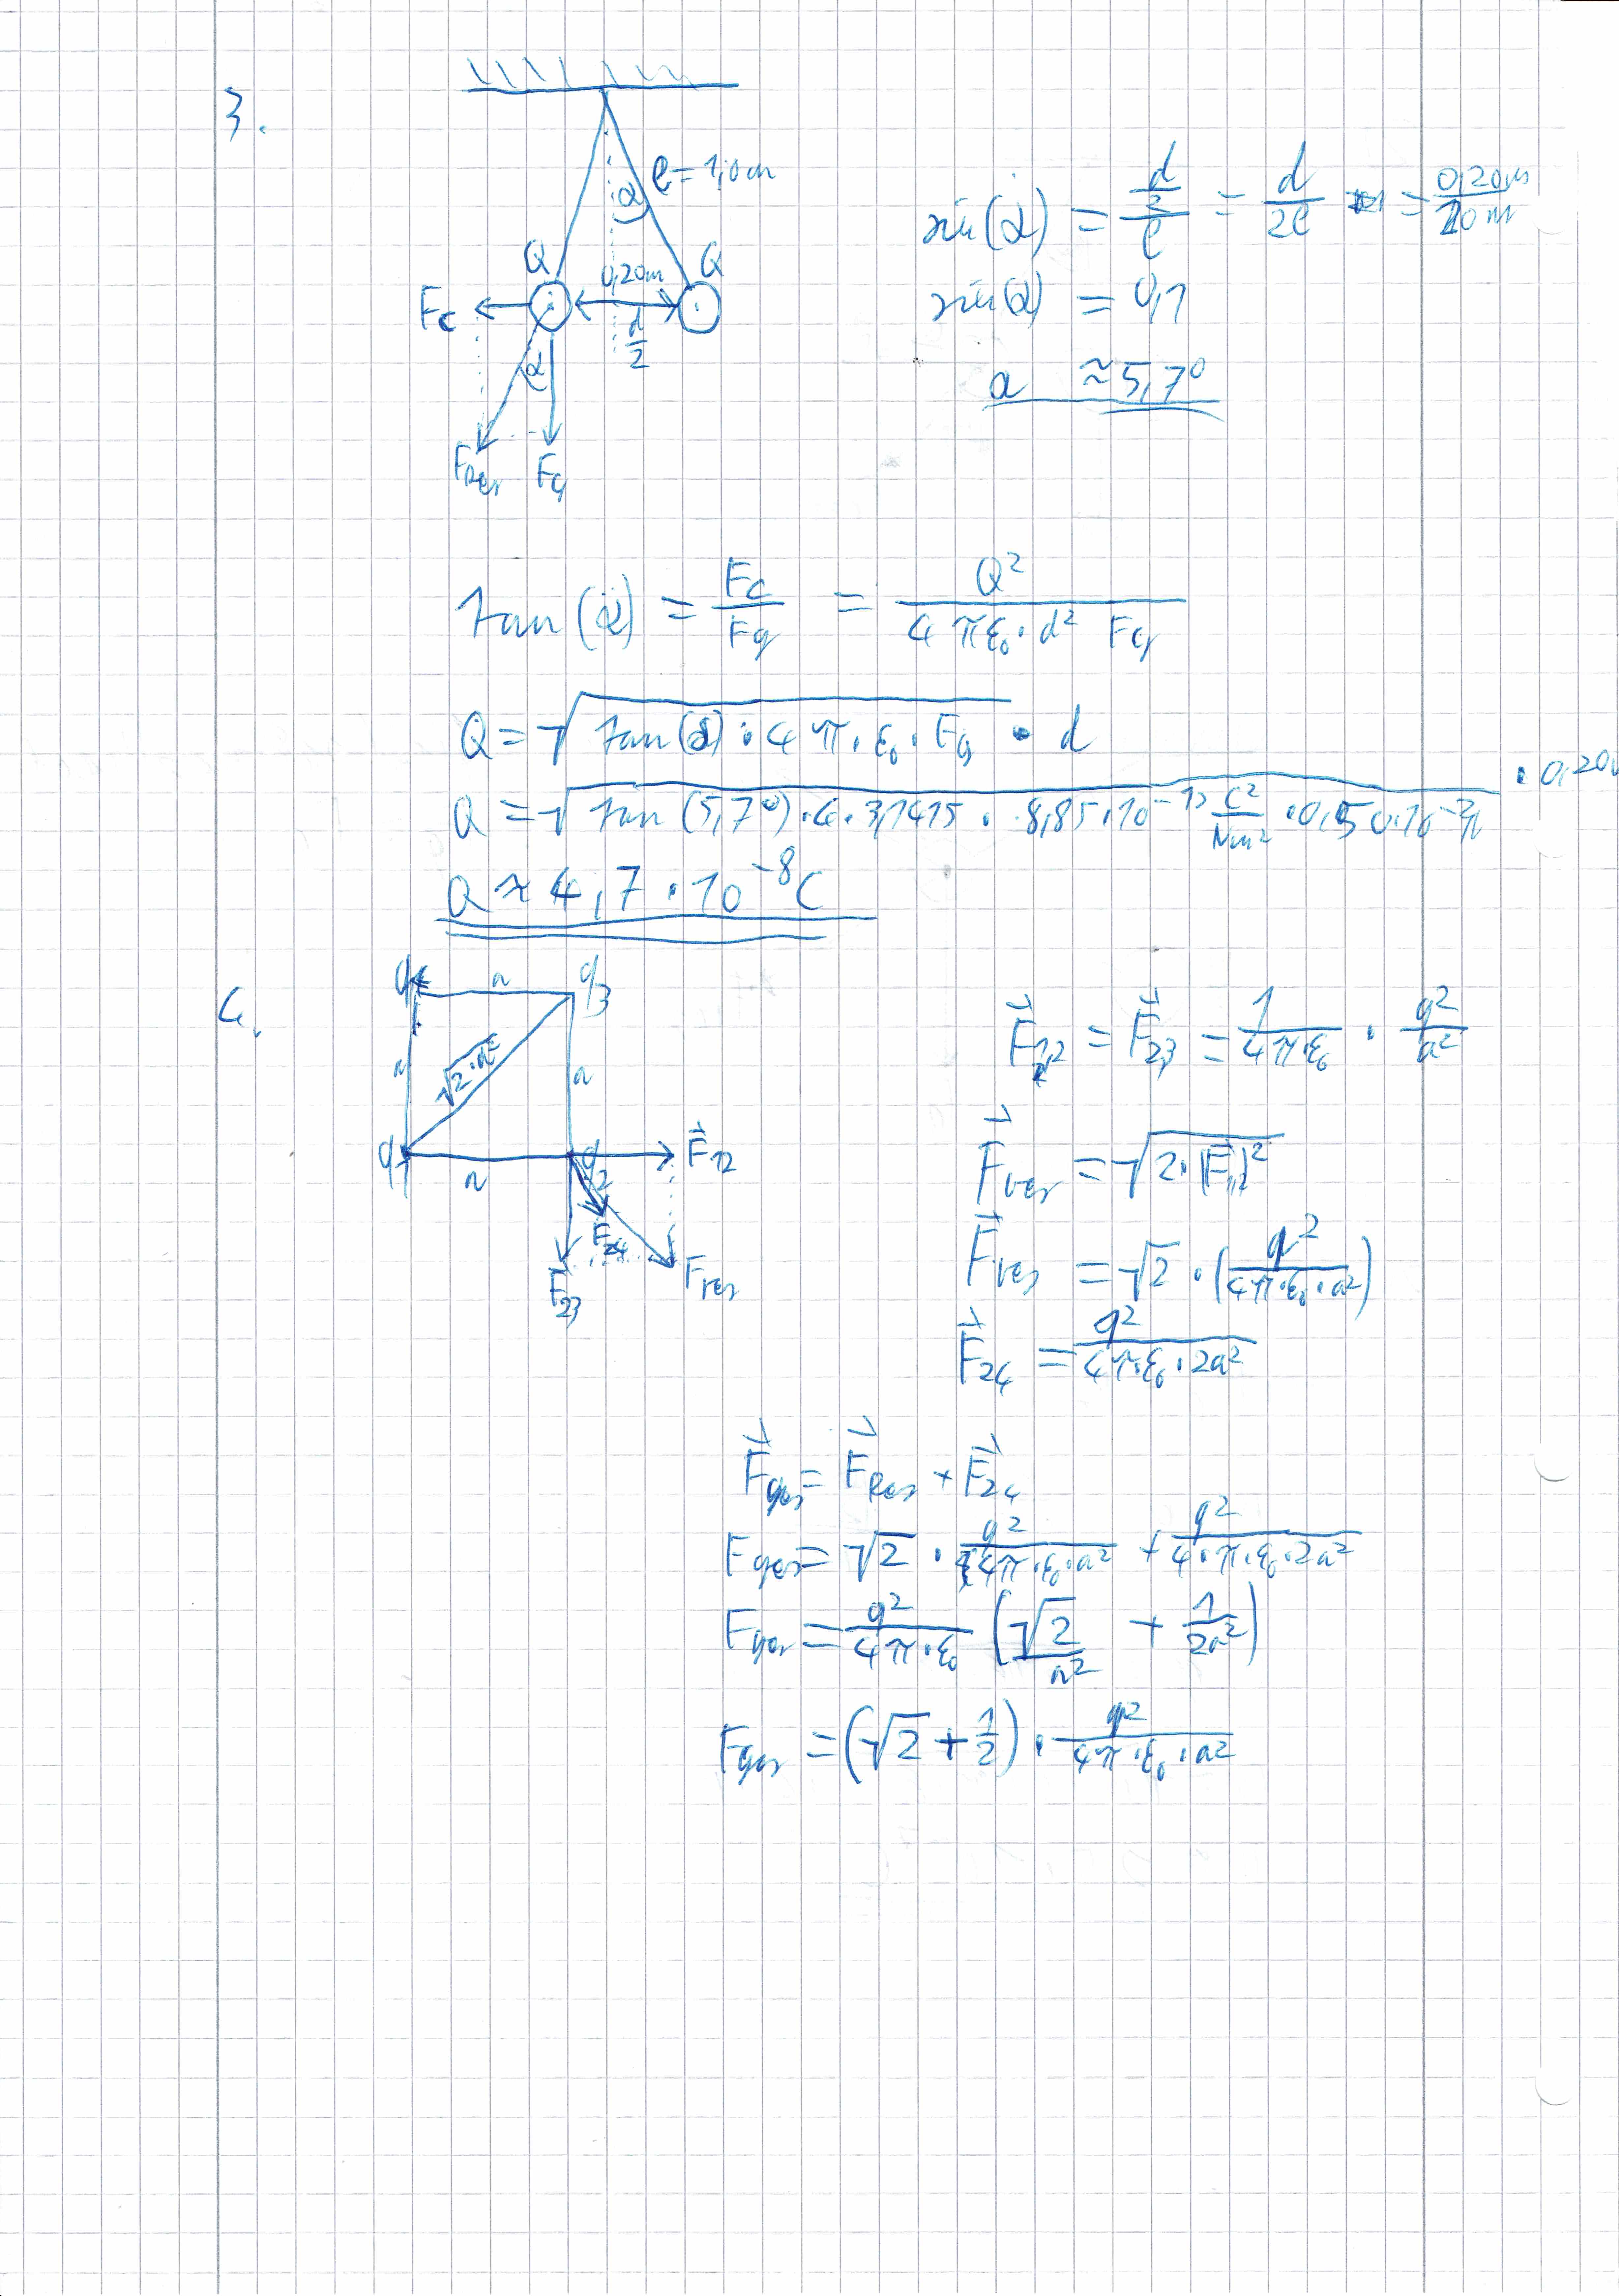 3.
l = 1,0m
α
Q Q
0,20m
F_C
d/2
α
F_Res F_g
sin(α) = (d/2)/l = d/2l = 0,20m/2,0m
sin(α) = 0,1
α ≈ 5,7°
tan(α) = F_C/F_g = Q²/(4πε₀·d² F_g)
Q = √(tan(α)·4π·ε₀·F_g) · d
Q = √(tan(5,7°)·4·3,1415·8,85·10⁻¹² C²/Nm²·0,50·10⁻³N) · 0,20m
Q ≈ 4,7·10⁻⁸C
4.
q₄ a q₃
a √2·a² a
q₁ a q₂ F⃗₁₂
F₂₄
F⃗₂₃ F_res
F⃗₁₂ = F⃗₂₃ = 1/(4π·ε₀) · q²/a²
F⃗_res = √(2·|F⃗₁₂|²)
F⃗_res = √2·(q²/(4π·ε₀·a²))
F⃗₂₄ = q²/(4π·ε₀·2a²)
F⃗_ges = F⃗_Res + F⃗₂₄
F_ges = √2 · q²/(4π·ε₀·a²) + q²/(4·π·ε₀·2a²)
F_ges = q²/(4π·ε₀) (√2/a² + 1/2a²)
F_ges = (√2 + 1/2) · q²/(4π·ε₀·a²)